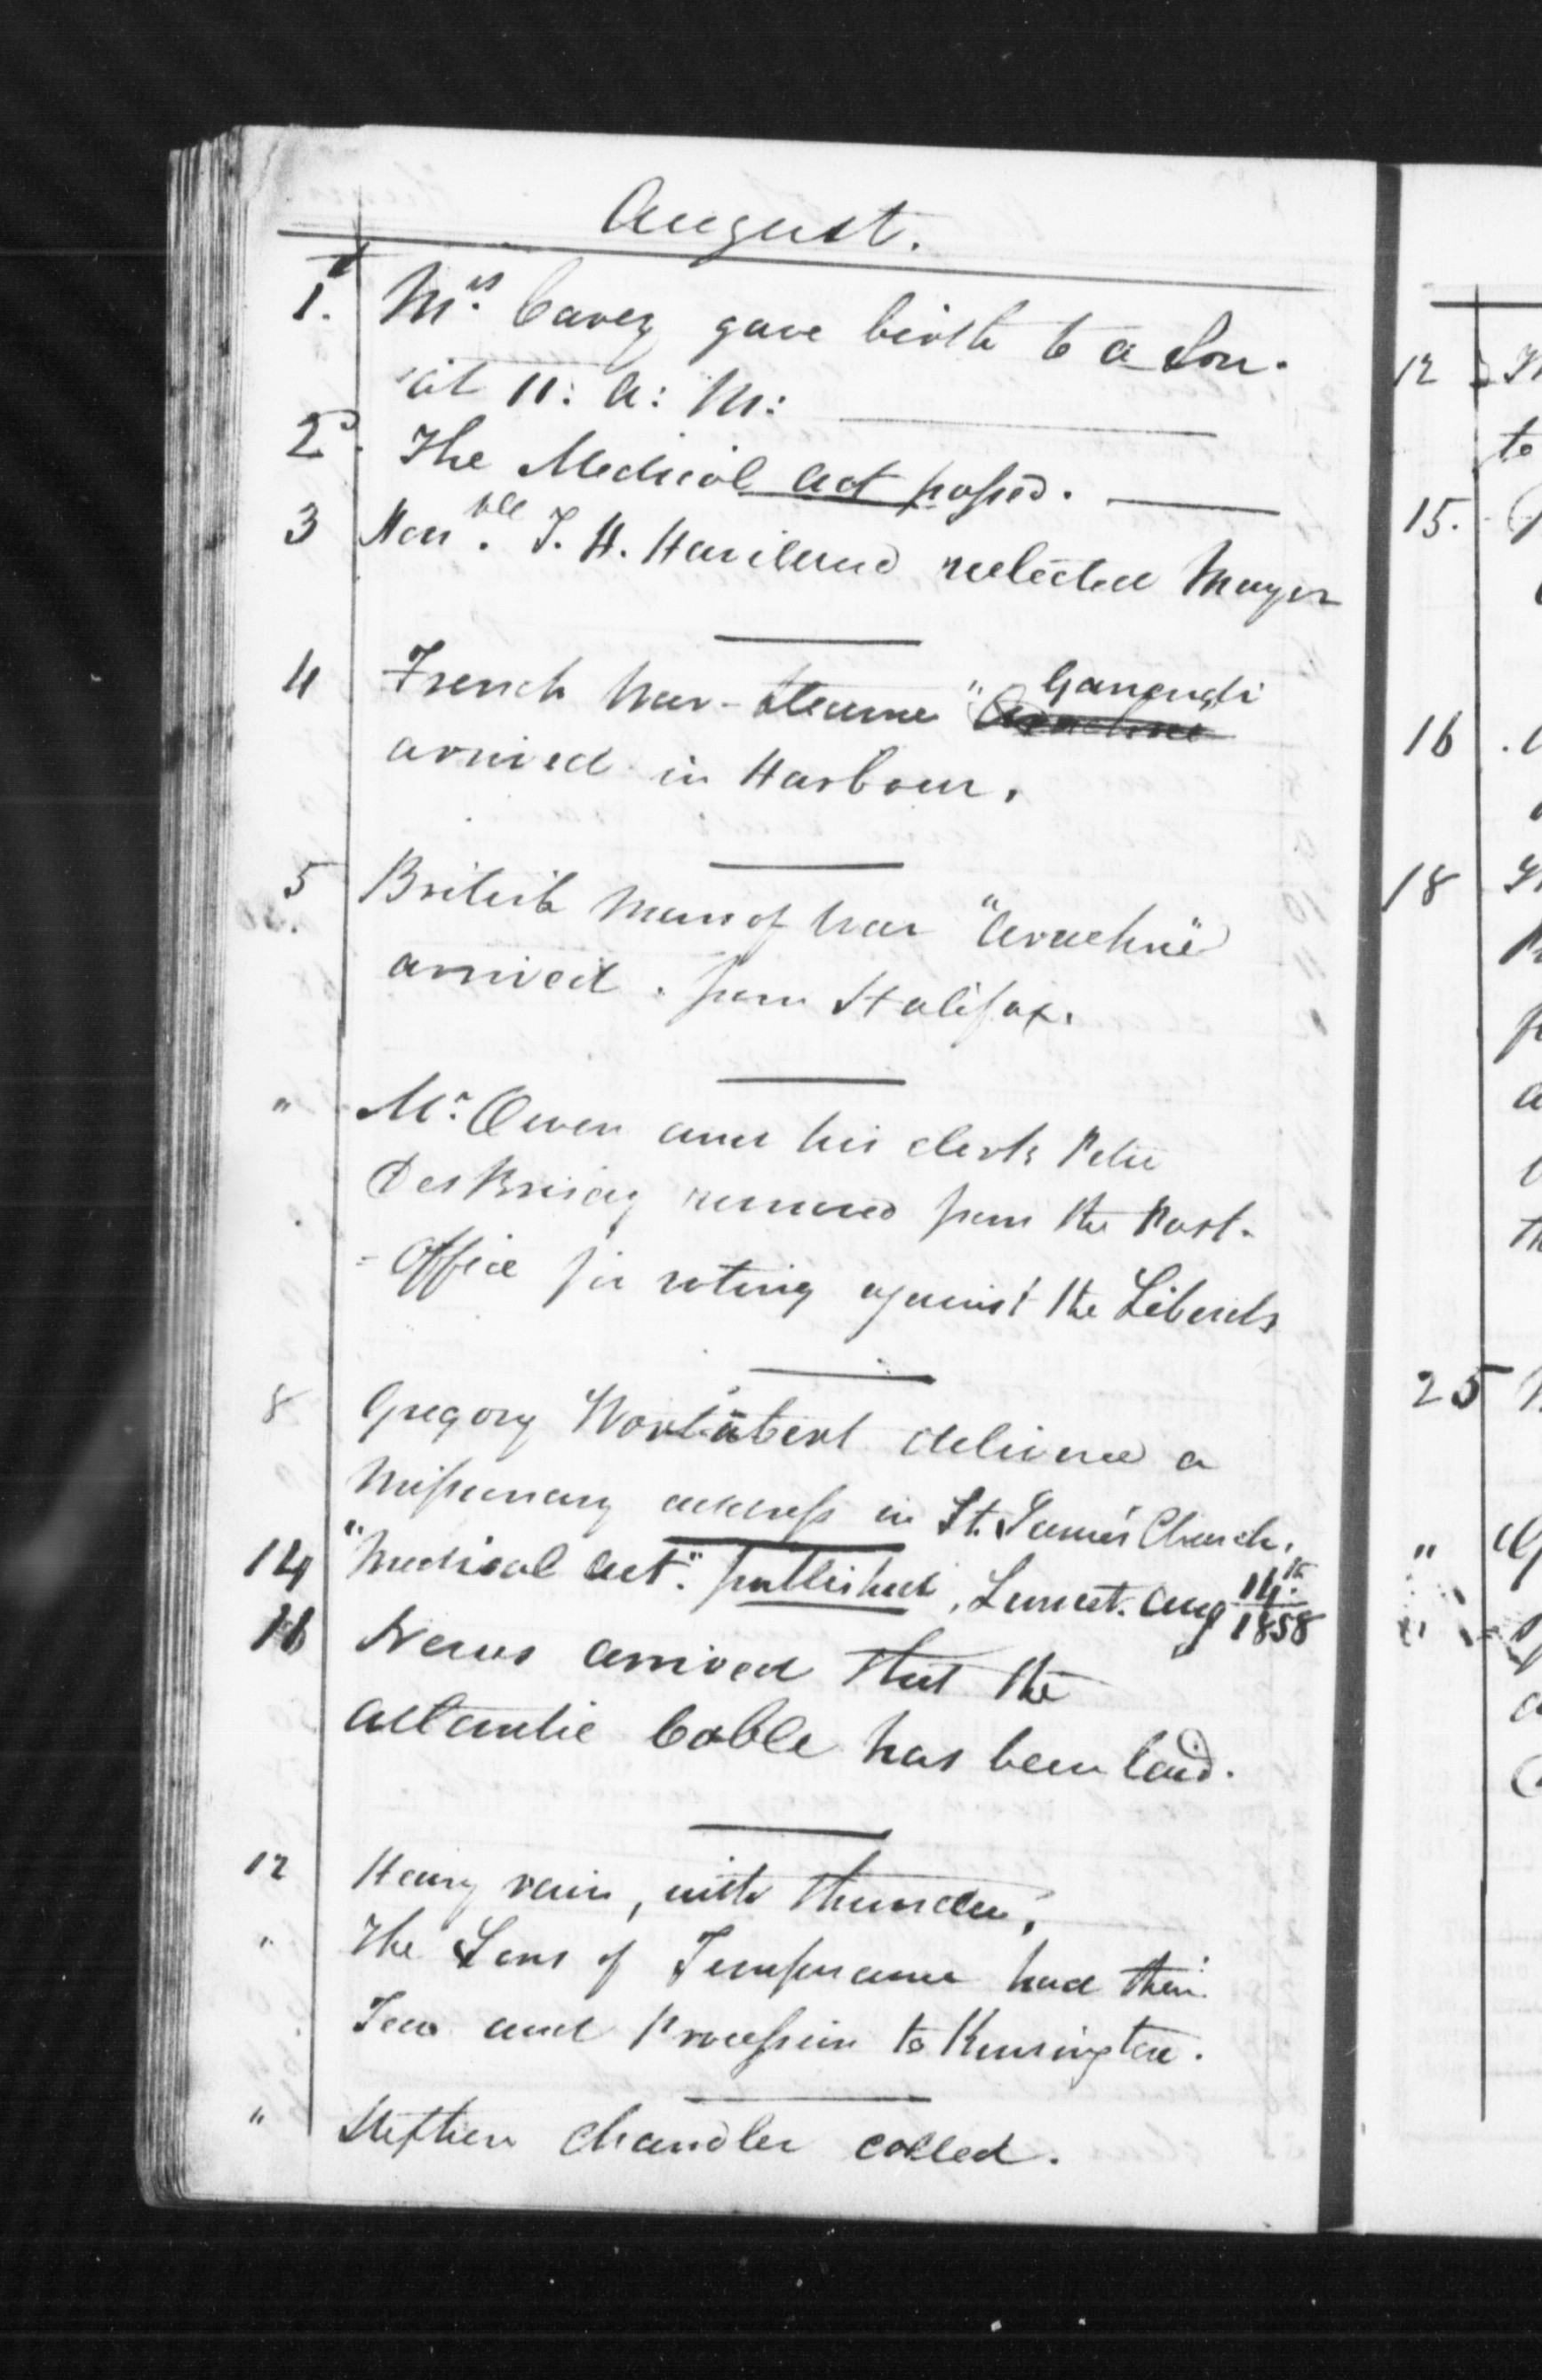 August.
1. Mrs. Carey gave birth to a Son.
at 11: A: M:
2d. The Medical Act passed.
3 Honble. T. H. Haviland reelected Mayor
4 French War-Steamer "Gassendi
Arachne
arrived in Harbour.
5 British Man of War "Arachne"
arrived. from Halifax.
" Mr. Owen and his clerk Peter
DesBrisay removed from the Post-
=Office for voting against the Liberals
8 Gregory Wortabert delivered a
Missionary address in St. James' Church.
14 "Medical Act". published, Lancet. Aug 14th. 1858
News arrived that the
Atlantic Cable has been laid.
12 Heavy rain, with thunder.
" The Sons of Temperance had their
Tea and Procession to Kensington.
" Stephen Chandler called.
12
to
15.
16
18
25
"